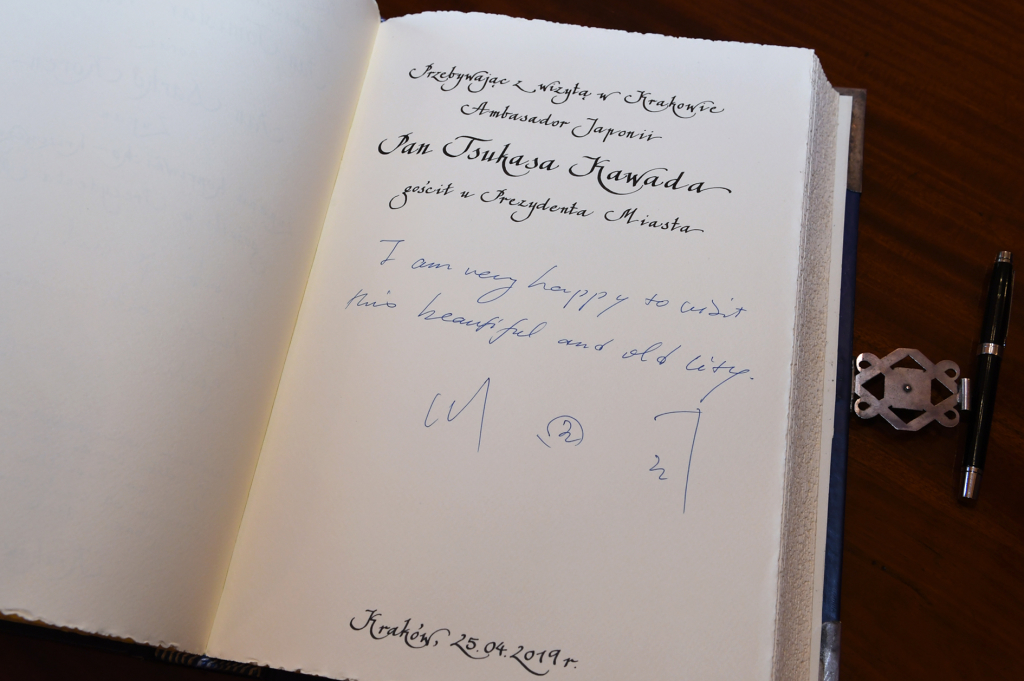 Przebywając z wizytą w Krakowie
Ambasador Japonii
Pan Tsukasa Kawada
gościł u Prezydenta Miasta
I am very happy to visit
this beautiful and old city.
Kraków, 25.04.2019 r.